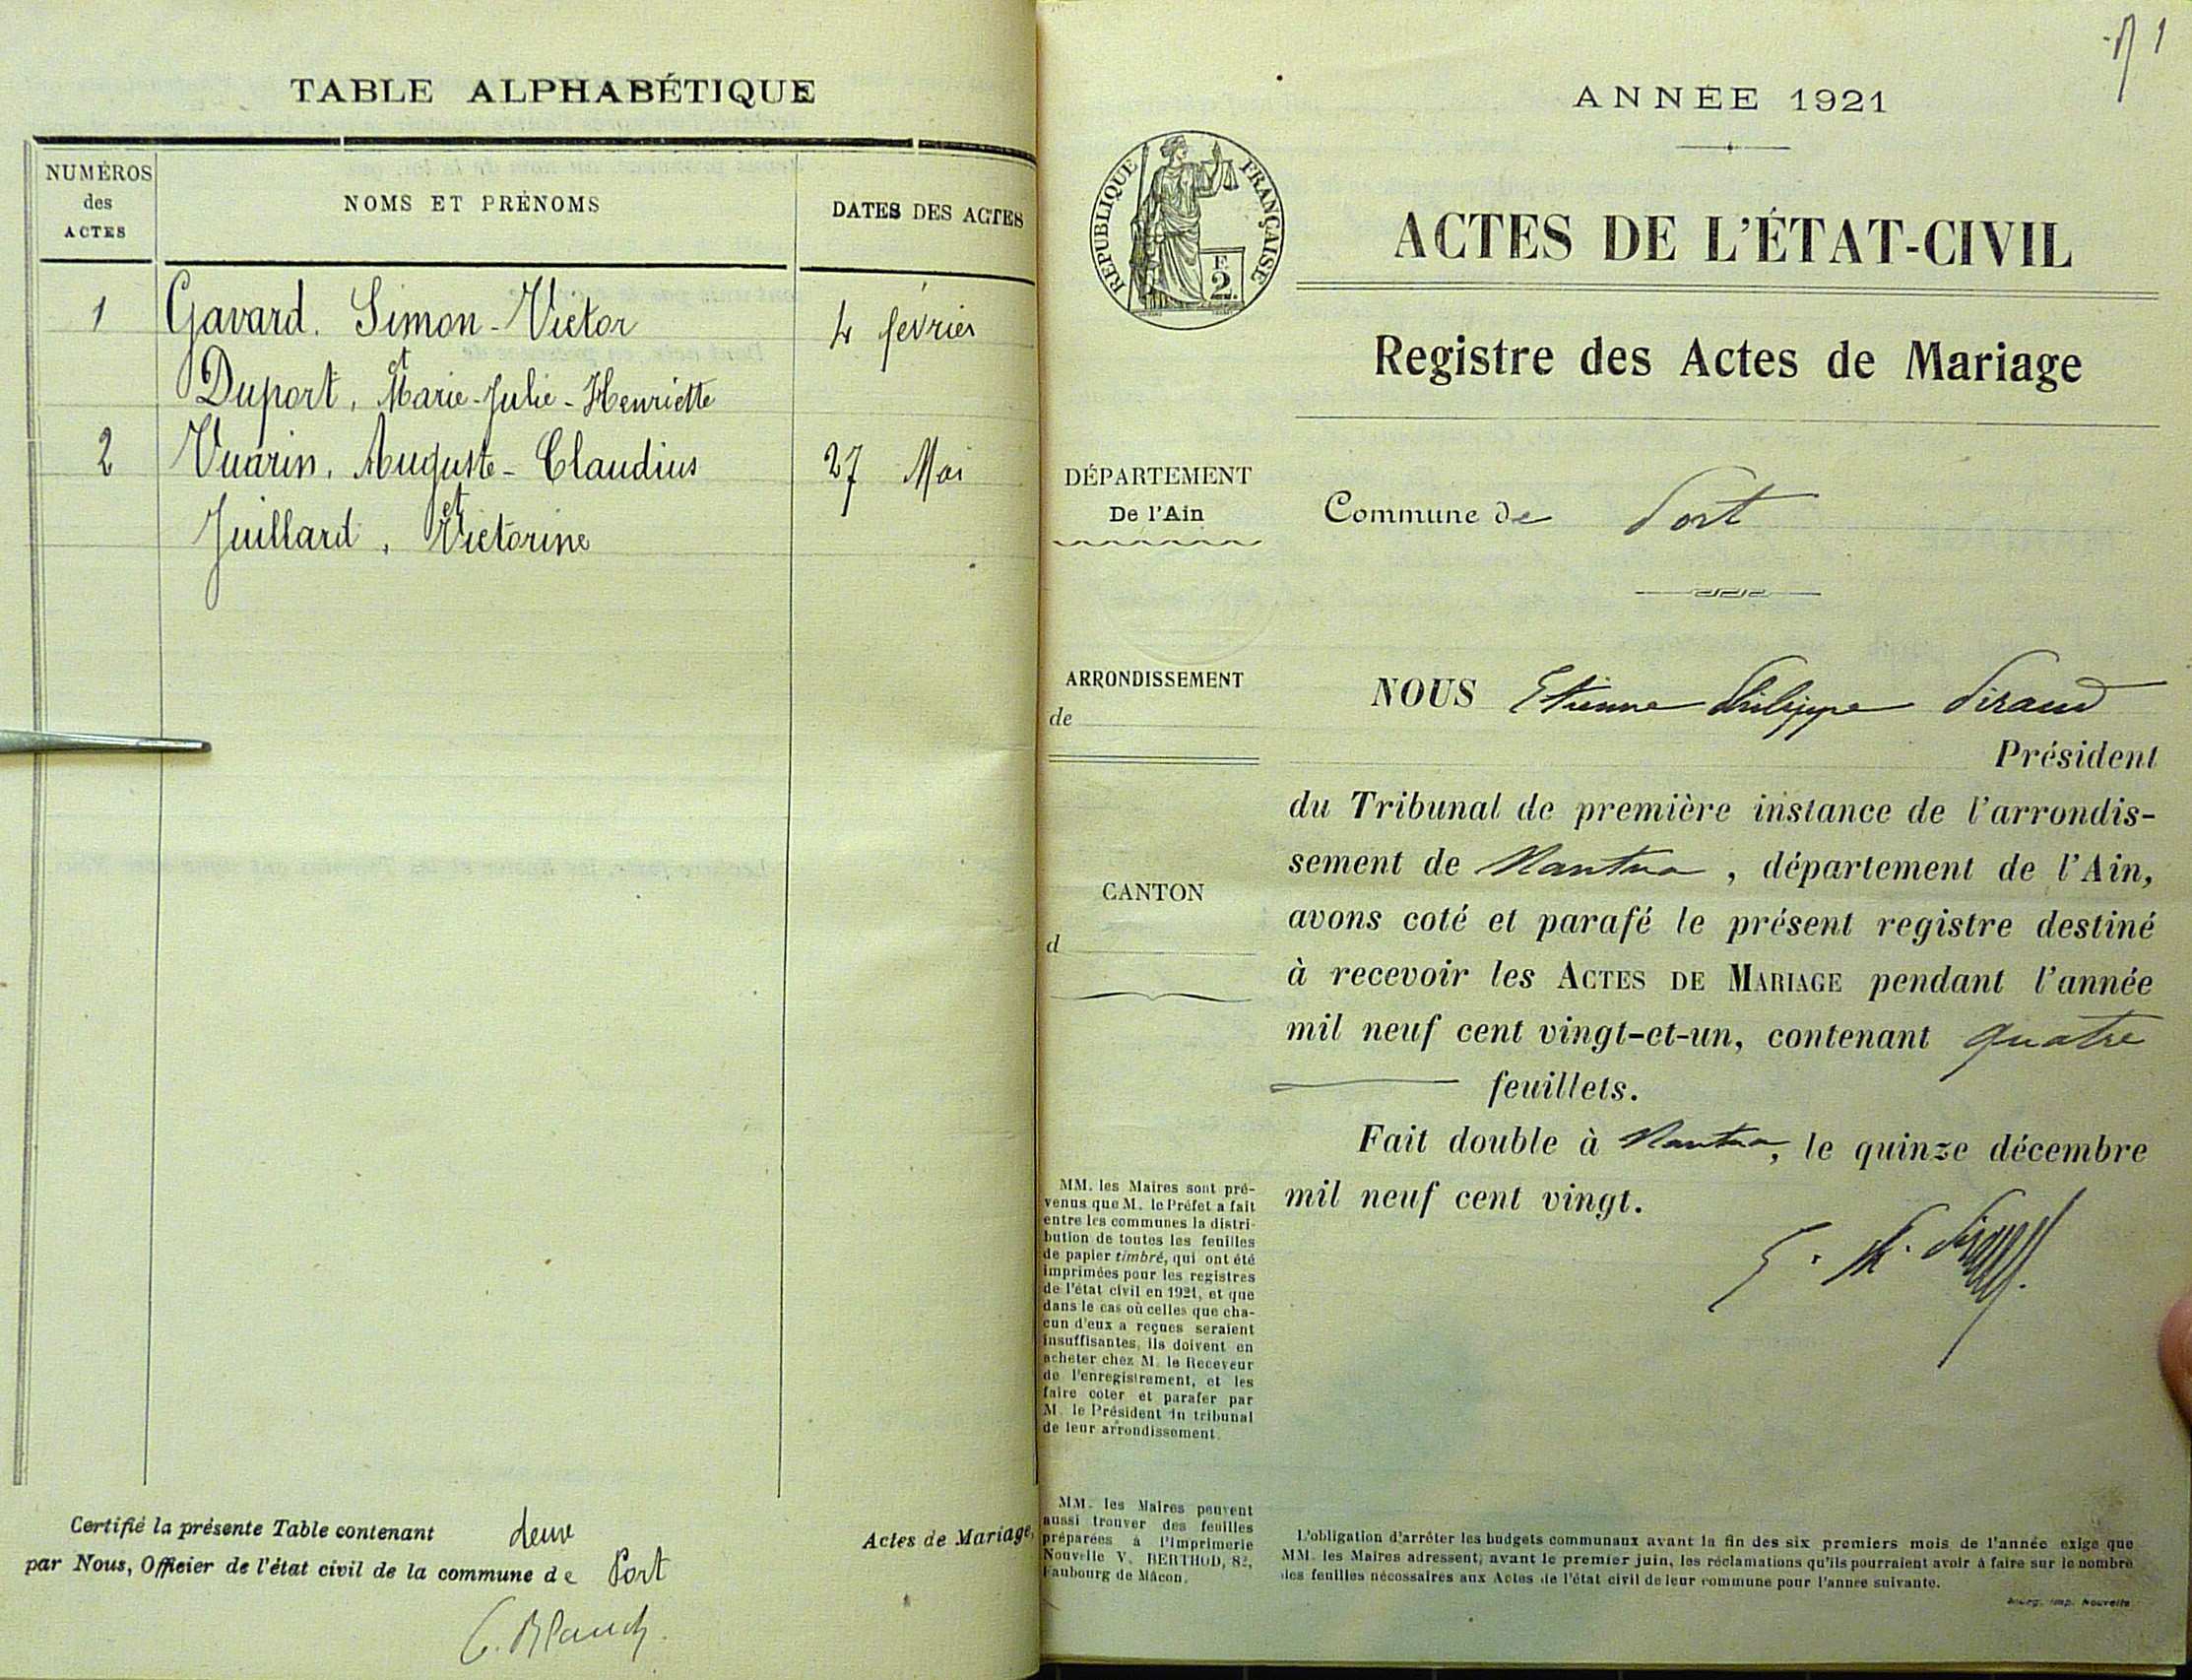 TABLE ALPHABÉTIQUE
NUMÉROS
des
ACTES
NOMS ET PRÉNOMS
DATES DES ACTES
1
Gavard. Simon-Victor
4 février
et
Duport, Marie-Julie-Henriette
2
Vuarin, Auguste-Claudius
27 Mai
et
Juillard, Victorine
Certifié la présente Table contenant deux Actes de Mariage,
par Nous, Officier de l'état civil de la commune de Port
C. Blanch
1
ANNÉE 1921
RÉPUBLIQUE FRANÇAISE
F
2.
ACTES DE L'ÉTAT-CIVIL
Registre des Actes de Mariage
DÉPARTEMENT
De l'Ain
Commune de Port
ARRONDISSEMENT
de
CANTON
d
NOUS Etienne Philippe Piraud
Président
du Tribunal de première instance de l'arrondis-
sement de Nantua, département de l'Ain,
avons coté et parafé le présent registre destiné
à recevoir les ACTES DE MARIAGE pendant l'année
mil neuf cent vingt-et-un, contenant quatre
feuillets.
Fait double à Nantua, le quinze décembre
mil neuf cent vingt.
MM. les Maires sont pré-
venus que M. le Préfet a fait
entre les communes la distri-
bution de toutes les feuilles
de papier timbré, qui ont été
imprimées pour les registres
de l'état civil en 1921, et que
dans le cas où celles que cha-
cun d'eux a reçues seraient
insuffisantes, ils doivent en
acheter chez M. le Receveur
de l'enregistrement, et les
faire coter et parafer par
M. le Président du tribunal
de leur arrondissement.
MM. les Maires peuvent
aussi trouver des feuilles
préparées à l'Imprimerie
Nouvelle V. BERTHOD, 82,
Faubourg de Mâcon.
L'obligation d'arrêter les budgets communaux avant la fin des six premiers mois de l'année exige que
MM. les Maires adressent, avant le premier juin, les réclamations qu'ils pourraient avoir à faire sur le nombre
des feuilles nécessaires aux Actes de l'état civil de leur commune pour l'année suivante.
Bourg, Imp. Nouvelle